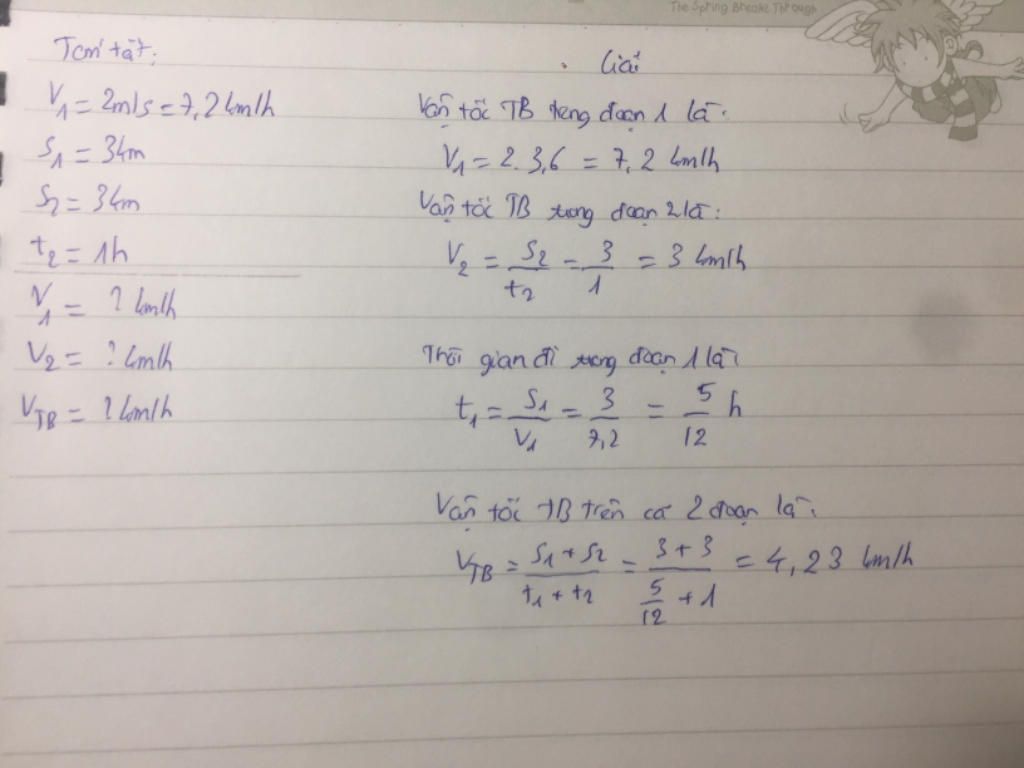 The Spring Breake Through
Tóm tắt:
V₁ = 2m/s = 7,2 km/h
S₁ = 3km
S₂ = 3km
t₂ = 1h
V₁ = ? km/h
V₂ = ? km/h
V_TB = ? km/h
Giải
Vận tốc TB trong đoạn 1 là:
V₁ = 2.3,6 = 7,2 km/h
Vận tốc TB trong đoạn 2 là:
V₂ = S₂/t₂ = 3/1 = 3 km/h
Thời gian đi trong đoạn 1 là:
t₁ = S₁/V₁ = 3/7,2 = 5/12 h
Vận tốc TB trên cả 2 đoạn là:
V_TB = (S₁ + S₂)/(t₁ + t₂) = (3 + 3)/(5/12 + 1) = 4,23 km/h